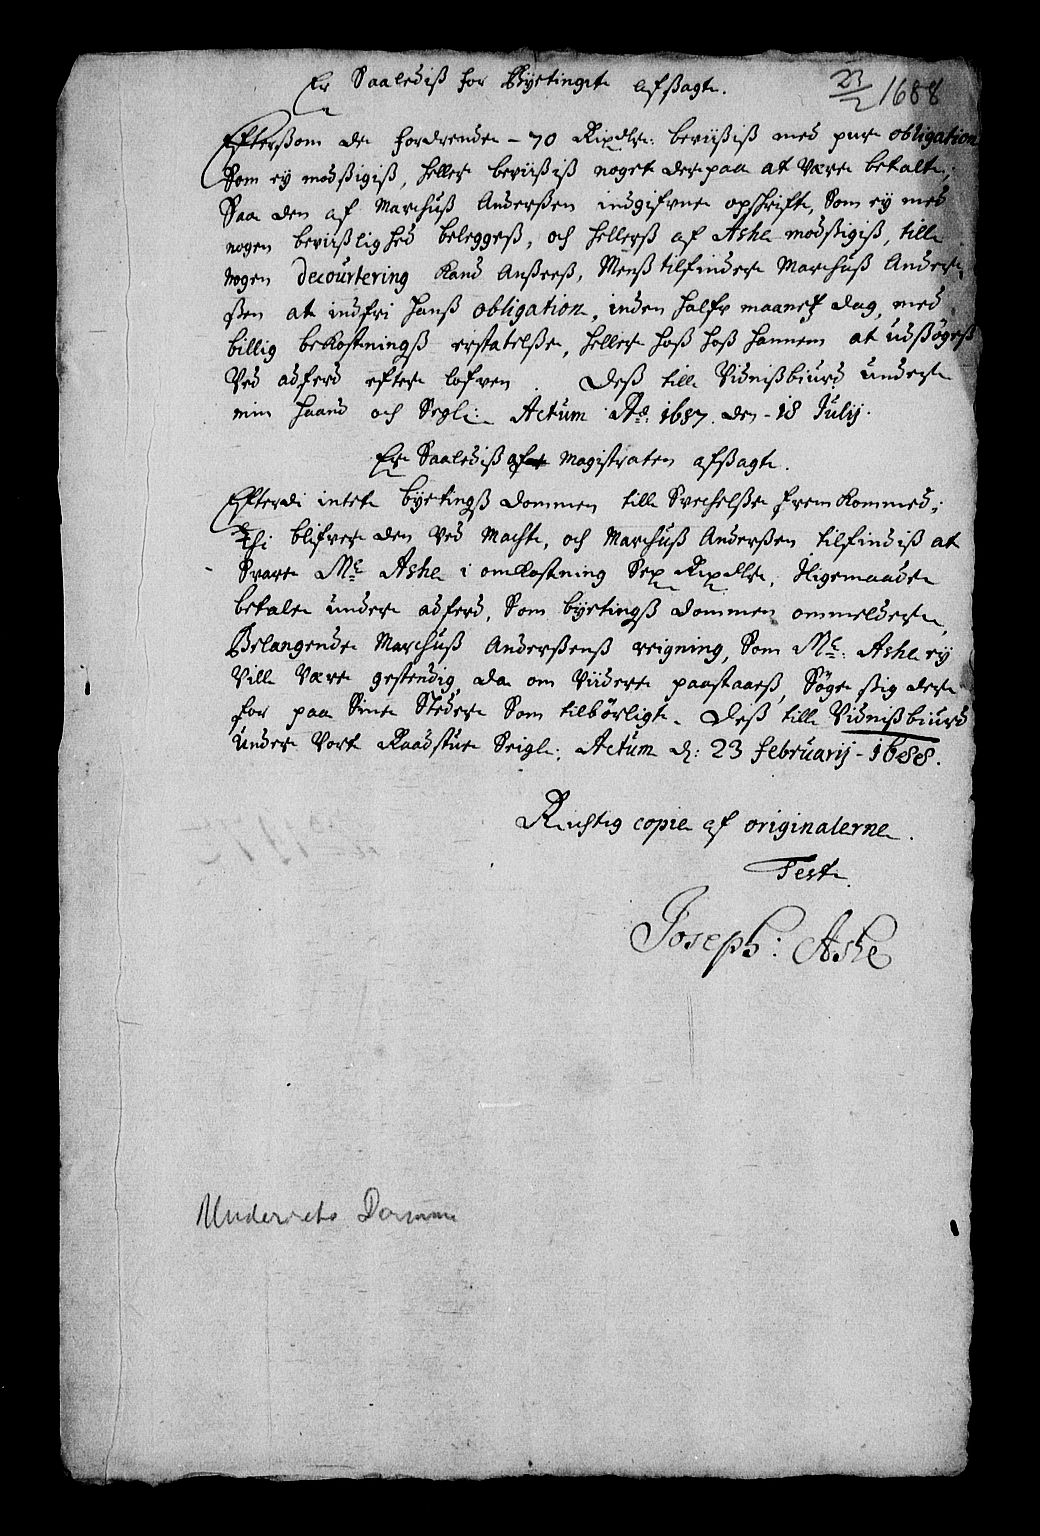 Er Saalediß for Byetinget afsagt.
23/2 1688
Efterßom de fordrende - 70 Rixdlr: beviißiß med pur obligation
Som ey modßigiß, heller beviißiß noget derpaa at være betalt;
Saa den af Marchuß Anderßen indgifvne opschrift, Som ey med
nogen bevißlighed beleggeß, och hellerß af Ashe modßigiß, till
nogen decourtering kand anßeeß, Menß tilfinder Marchuß Ander-
ßen at indfri hanß obligation, inden halfr maanet dag, med
billig bekostningß erstatelße, heller hoß hoß hannem at udßögeß
Ved adferd efter lofven. Deß till Vidnißbiurd under
min haand och Segl: Actum Ao: 1687. den - 18 Julij.
Er Saalediß af Magistraten afsagt.
Efterdi intet byetingß dommen till Svechelße fremkommed;
Thi blifver den ved macht, och Marchuß Anderßen tilfindiß at
Svare Mr: Ashe i omkostning Sex Rixdlr, Ligemaade
betale under adferd, Som byetingß dommen ommelder,
Belangende Marchuß Anderßenß reigning, Som Mr: Ashe ey
Ville Være gestendig, da om Viidere paastaaeß, Söge sig der
for paa Sine Steder Som tilbörligt. Deß till Vidnißbiurd
under Vort Raadstue Seigl: Actum d: 23 februarij - 1688.
Richtig copie af originalerne.
Test
Joseph: Ashe
Underrets Domme